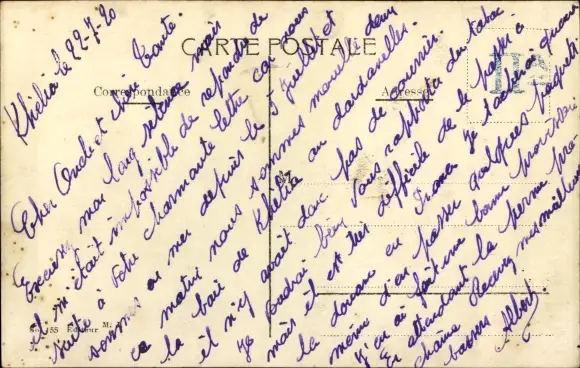 CARTE POSTALE
Correspondance
Adresse
Khelia le 22-7-20
Cher Oncle et chère Tante
Excusez mon long retard mais
il m'était impossible de repondre de
suite à votre charmante lettre car nous
sommes en mer depuis le 5 Juillet et
ce matin nous sommes mouillé dans
la baie de Khelia au dardanelles.
il n'y avait donc pas de courrier.
Je voudrai bien vous rapporter du tabac
mais il est très difficile de le passer à
la douane en France. Je tacherai quand
meme d'en passer quelques paquets
J'en ai fait une bonne provision
En attendant la perme pro
chaine Recevez mes meilleurs
baisers Albert
55 Editeur M.